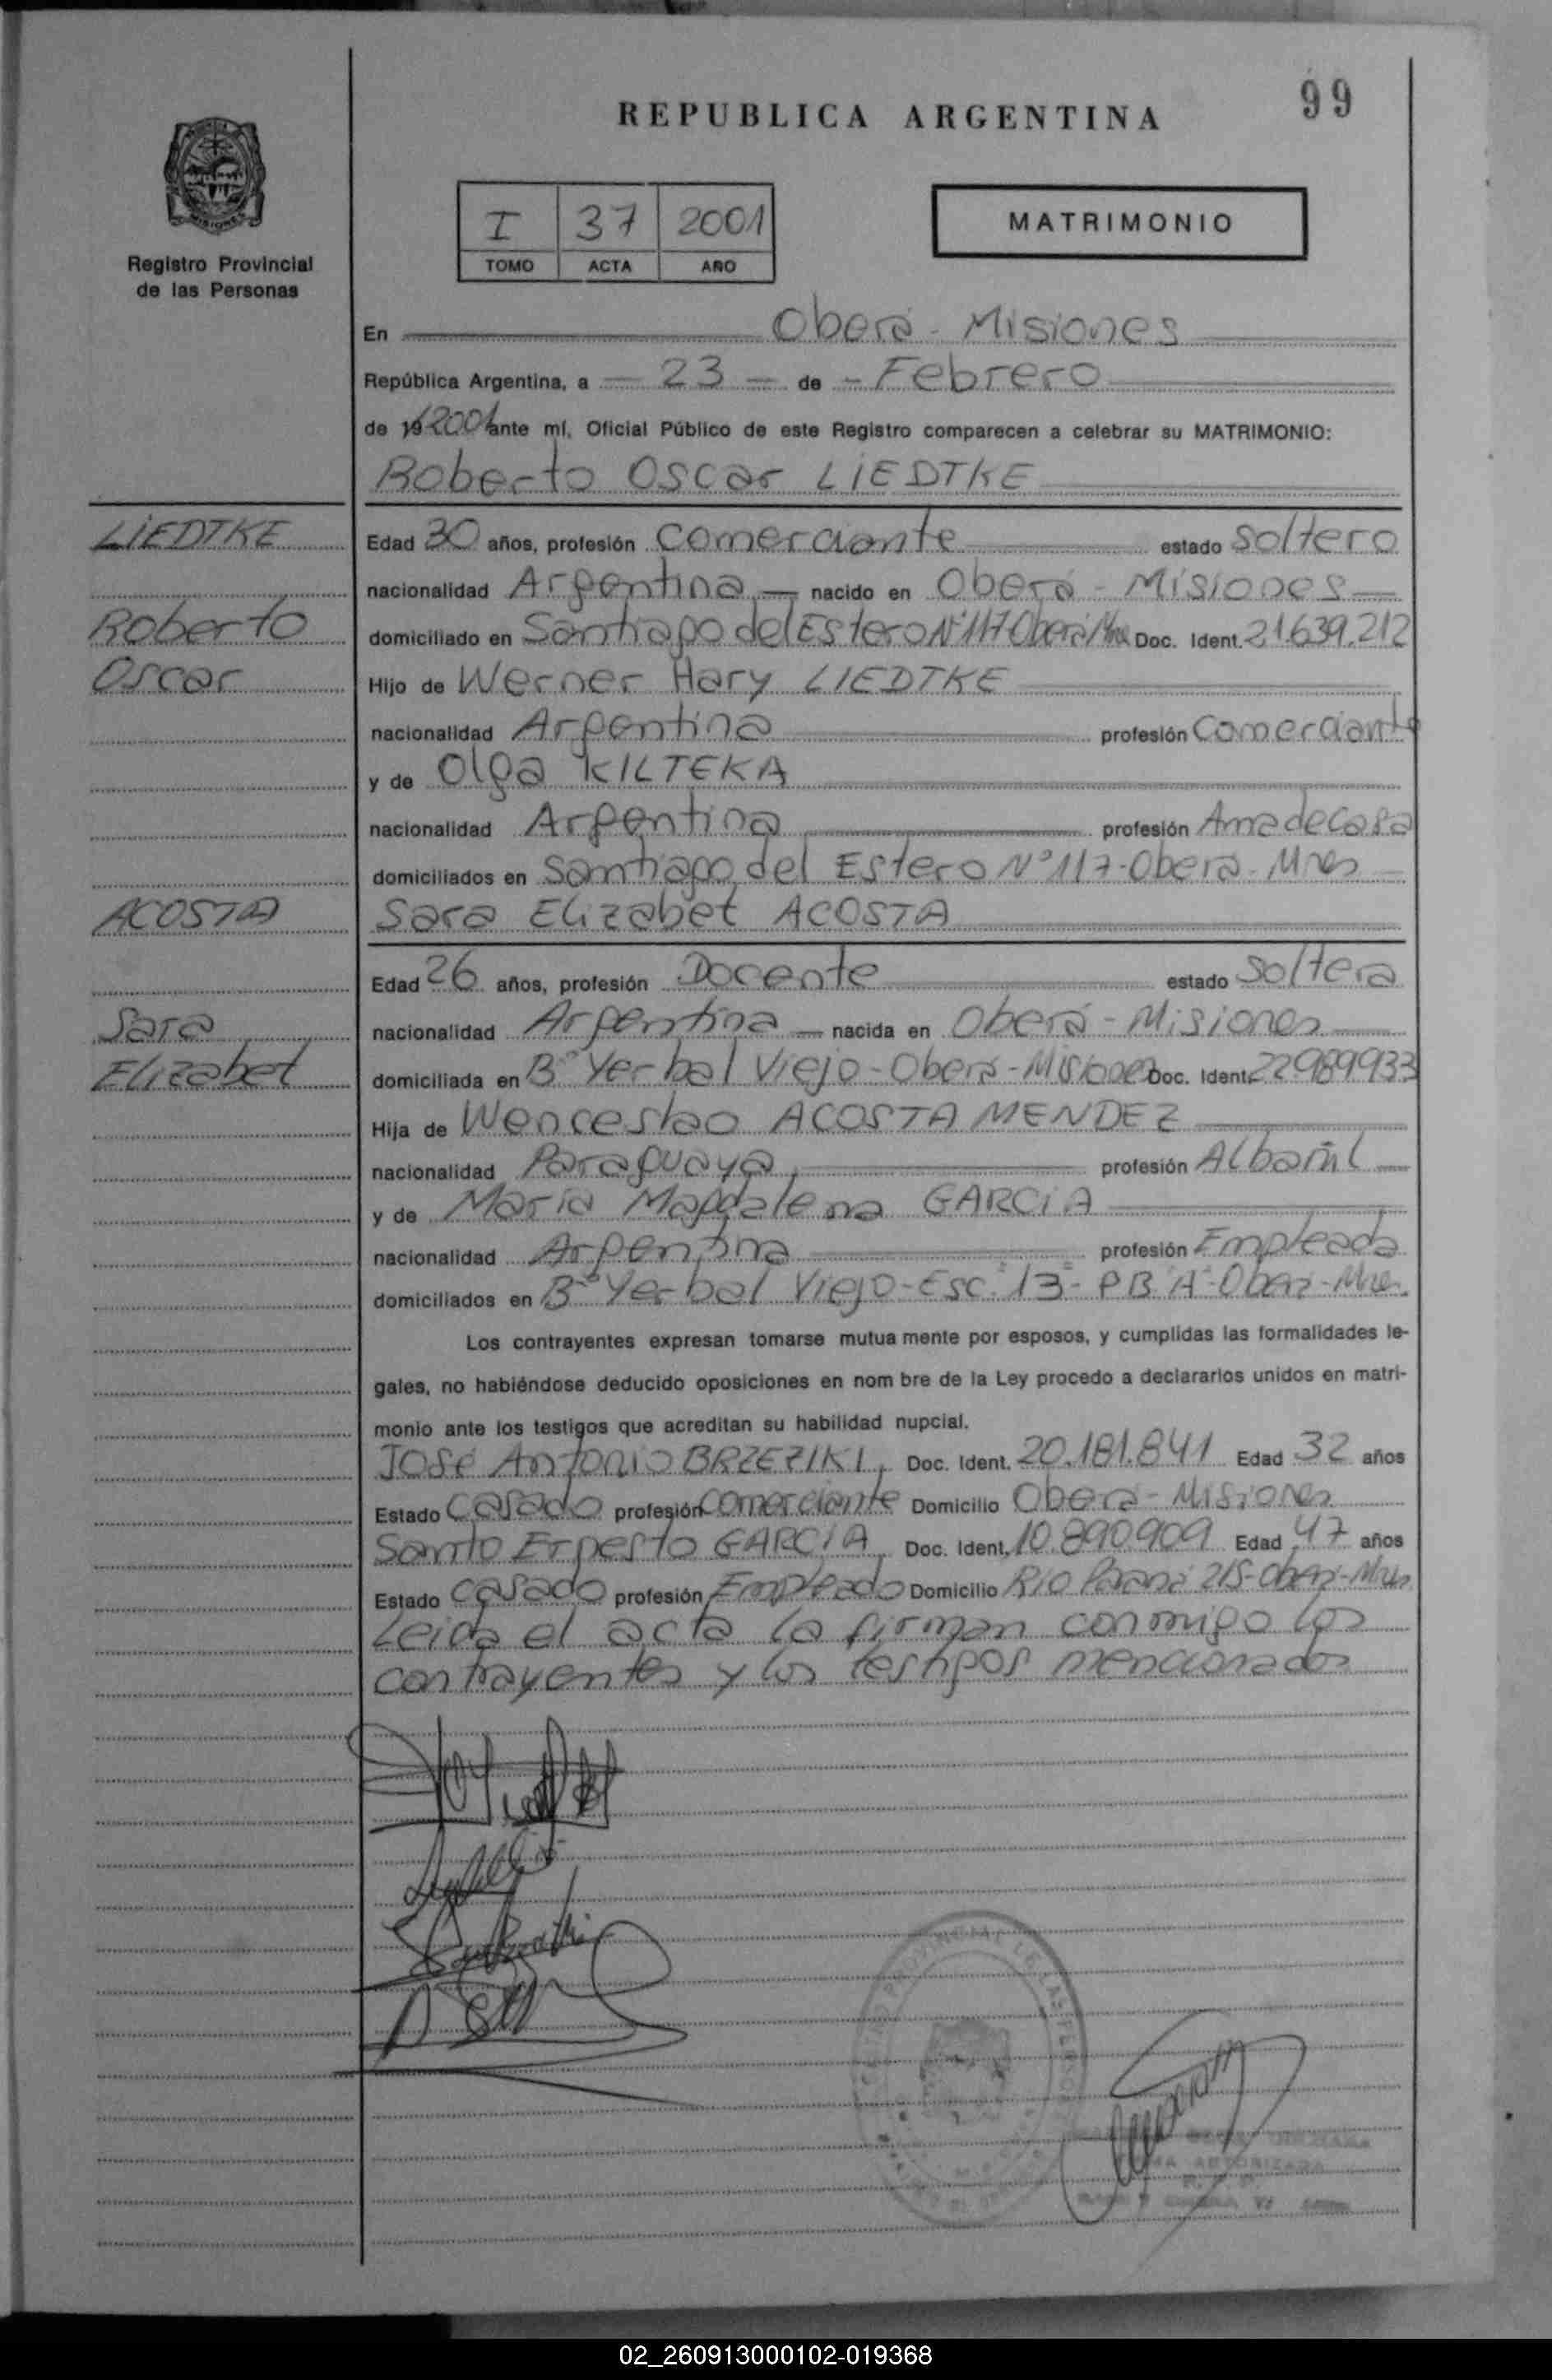 99
REPUBLICA ARGENTINA
MISIONES
Registro Provincial
de las Personas
I 37 2001
TOMO ACTA AÑO
MATRIMONIO
En Oberá - Misiones
República Argentina, a - 23 - de - Febrero
de 19 2001 ante mí, Oficial Público de este Registro comparecen a celebrar su MATRIMONIO:
Roberto Oscar LIEDTKE
LIEDTKE
Edad 30 años, profesión comerciante estado soltero
nacionalidad Argentina nacido en Oberá - Misiones
Roberto
domiciliado en Santiago del Estero Nº 117 Oberá Mnes Doc. Ident. 21.639.212
Oscar
Hijo de Werner Hary LIEDTKE
nacionalidad Argentina profesión Comerciante
y de Olga KILTEKA
nacionalidad Argentina profesión Ama de Casa
domiciliados en Santiago del Estero Nº 117 - Oberá - Mnes
ACOSTA
Sara Elizabet ACOSTA
Edad 26 años, profesión Docente estado soltera
Sara
nacionalidad Argentina nacida en Oberá - Misiones
Elizabet
domiciliada en Bº Yerbal Viejo - Oberá - Misiones Doc. Ident. 22989933
Hija de Wenceslao ACOSTA MENDEZ
nacionalidad Paraguaya profesión Albañil
y de María Magdalena GARCIA
nacionalidad Argentina profesión Empleada
domiciliados en Bº Yerbal Viejo - Esc. 13 - PB "A" - Oberá - Mnes.
Los contrayentes expresan tomarse mutua mente por esposos, y cumplidas las formalidades le-
gales, no habiéndose deducido oposiciones en nom bre de la Ley procedo a declararlos unidos en matri-
monio ante los testigos que acreditan su habilidad nupcial.
José Antonio BRZEZIKI, Doc. Ident. 20.181.841 Edad 32 años
Estado casado profesión comerciante Domicilio Oberá - Misiones
Santo Ernesto GARCIA, Doc. Ident. 10.890.909 Edad 47 años
Estado casado profesión Empleado Domicilio Río Paraná 215 - Oberá - Mnes
Leida el acta la firman conmigo los
contrayentes y los testigos mencionados
02_260913000102-019368